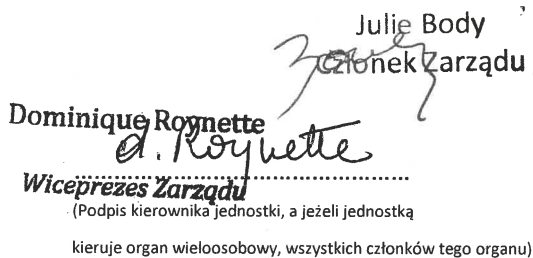 Julie Body
Członek Zarządu
Dominique Roynette
d. Roynette
Wiceprezes Zarządu
(Podpis kierownika jednostki, a jeżeli jednostką
kieruje organ wieloosobowy, wszystkich członków tego organu)